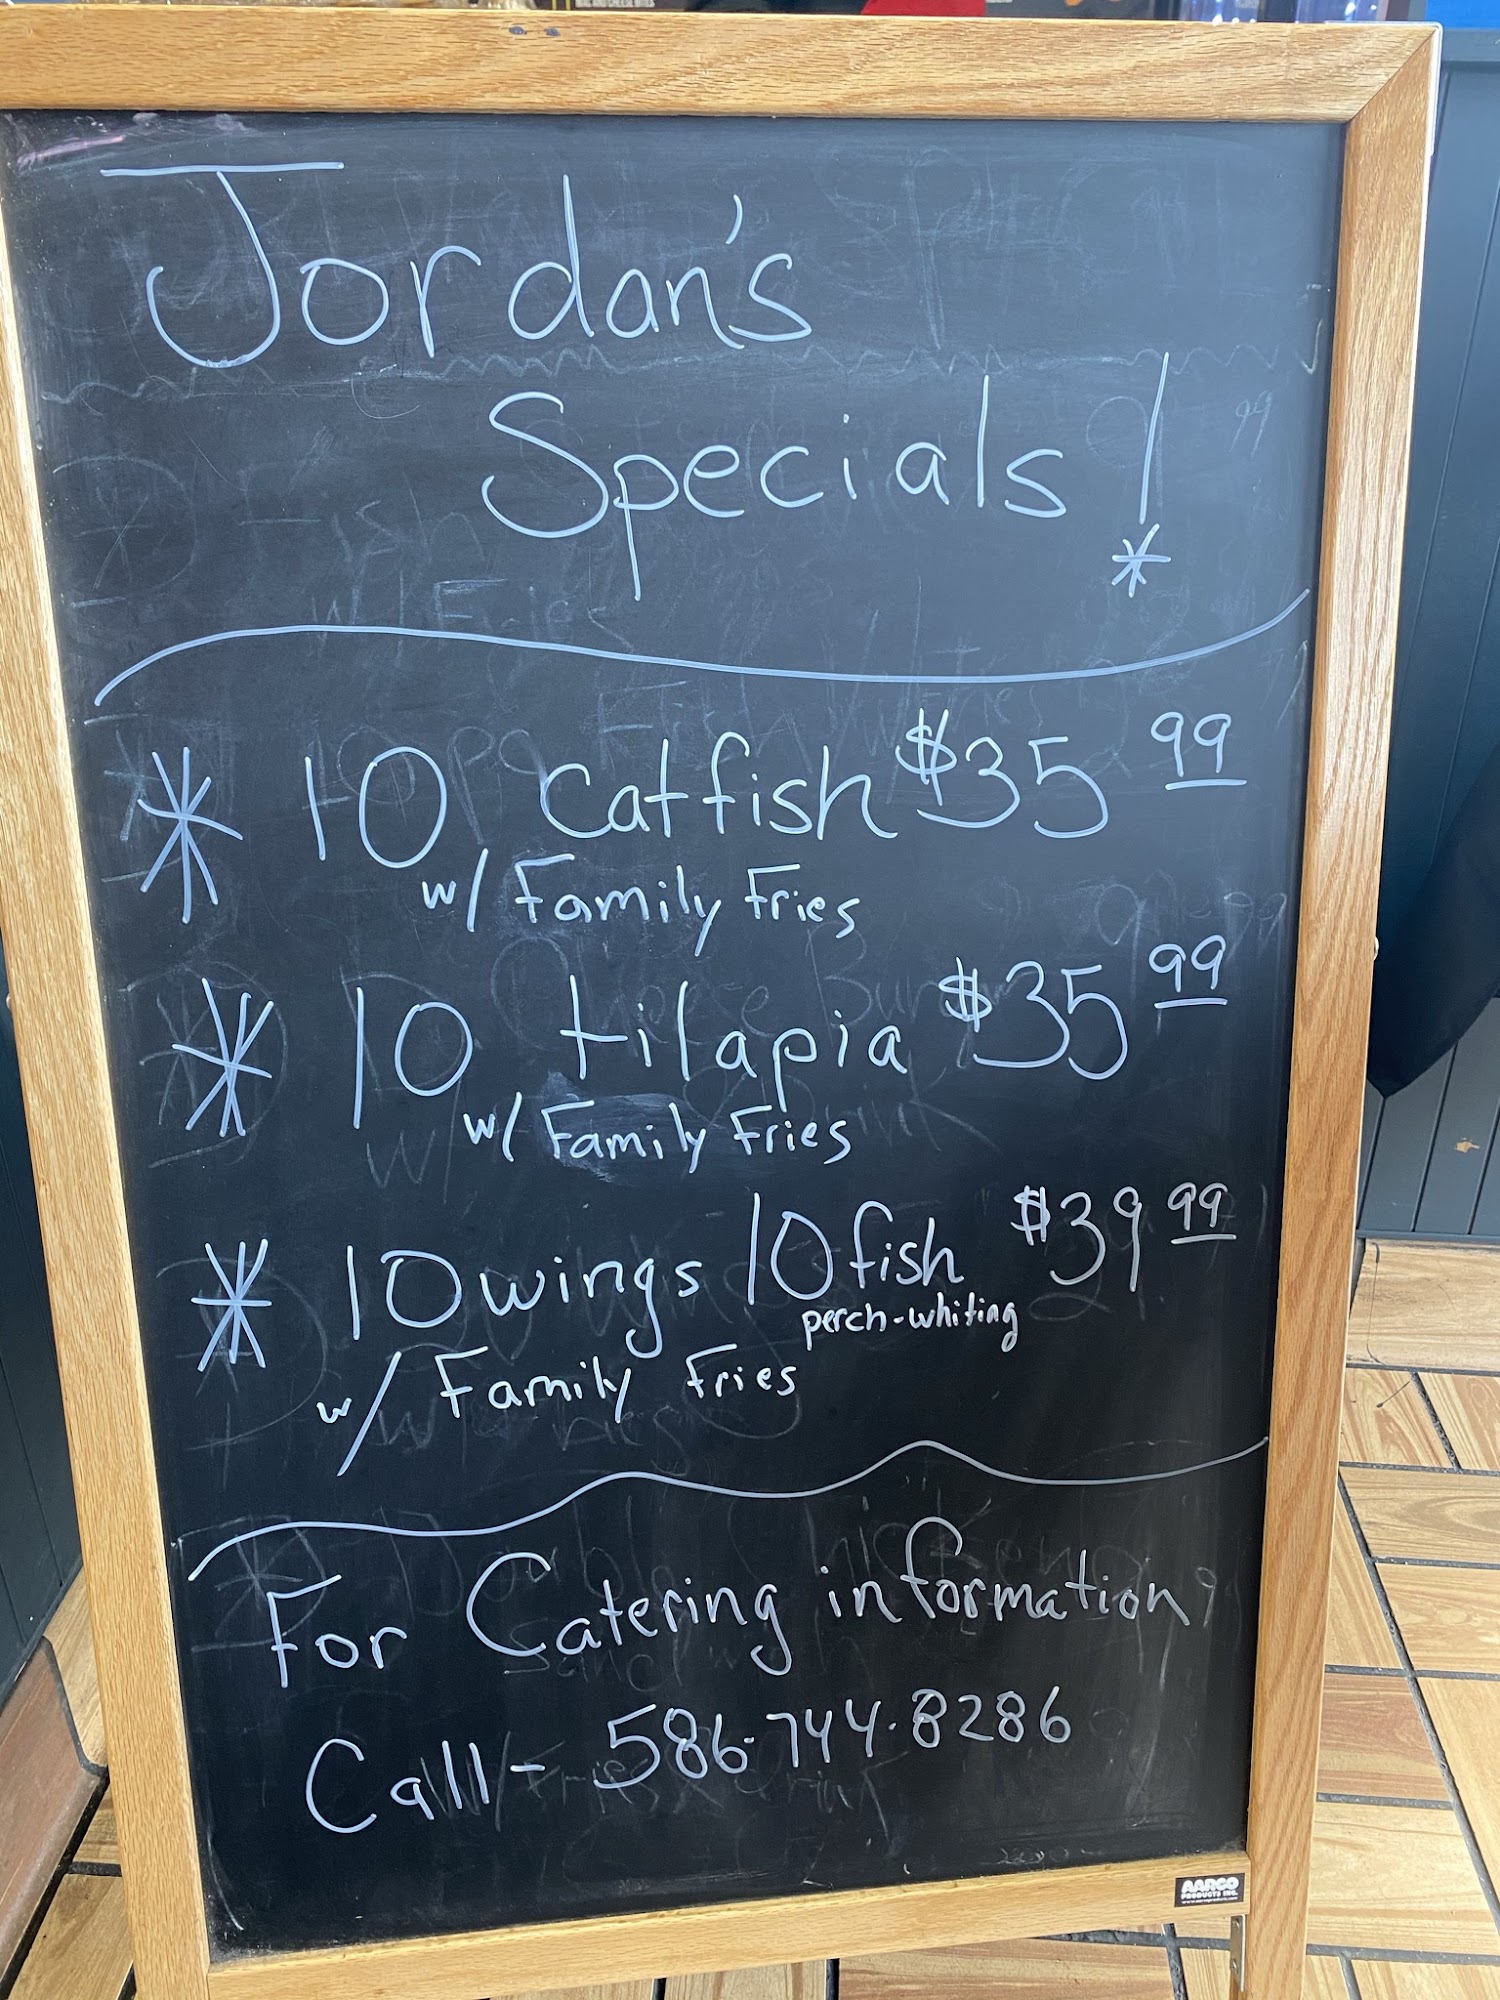 Jordan's
Specials!
* 10 Catfish $35 99
w/ Family Fries
* 10 tilapia $35 99
w/ Family Fries
* 10 wings 10 fish $39 99
perch-whiting
w/ Family Fries
For Catering information
Call - 586-744-8286
AARCO
PRODUCTS INC.